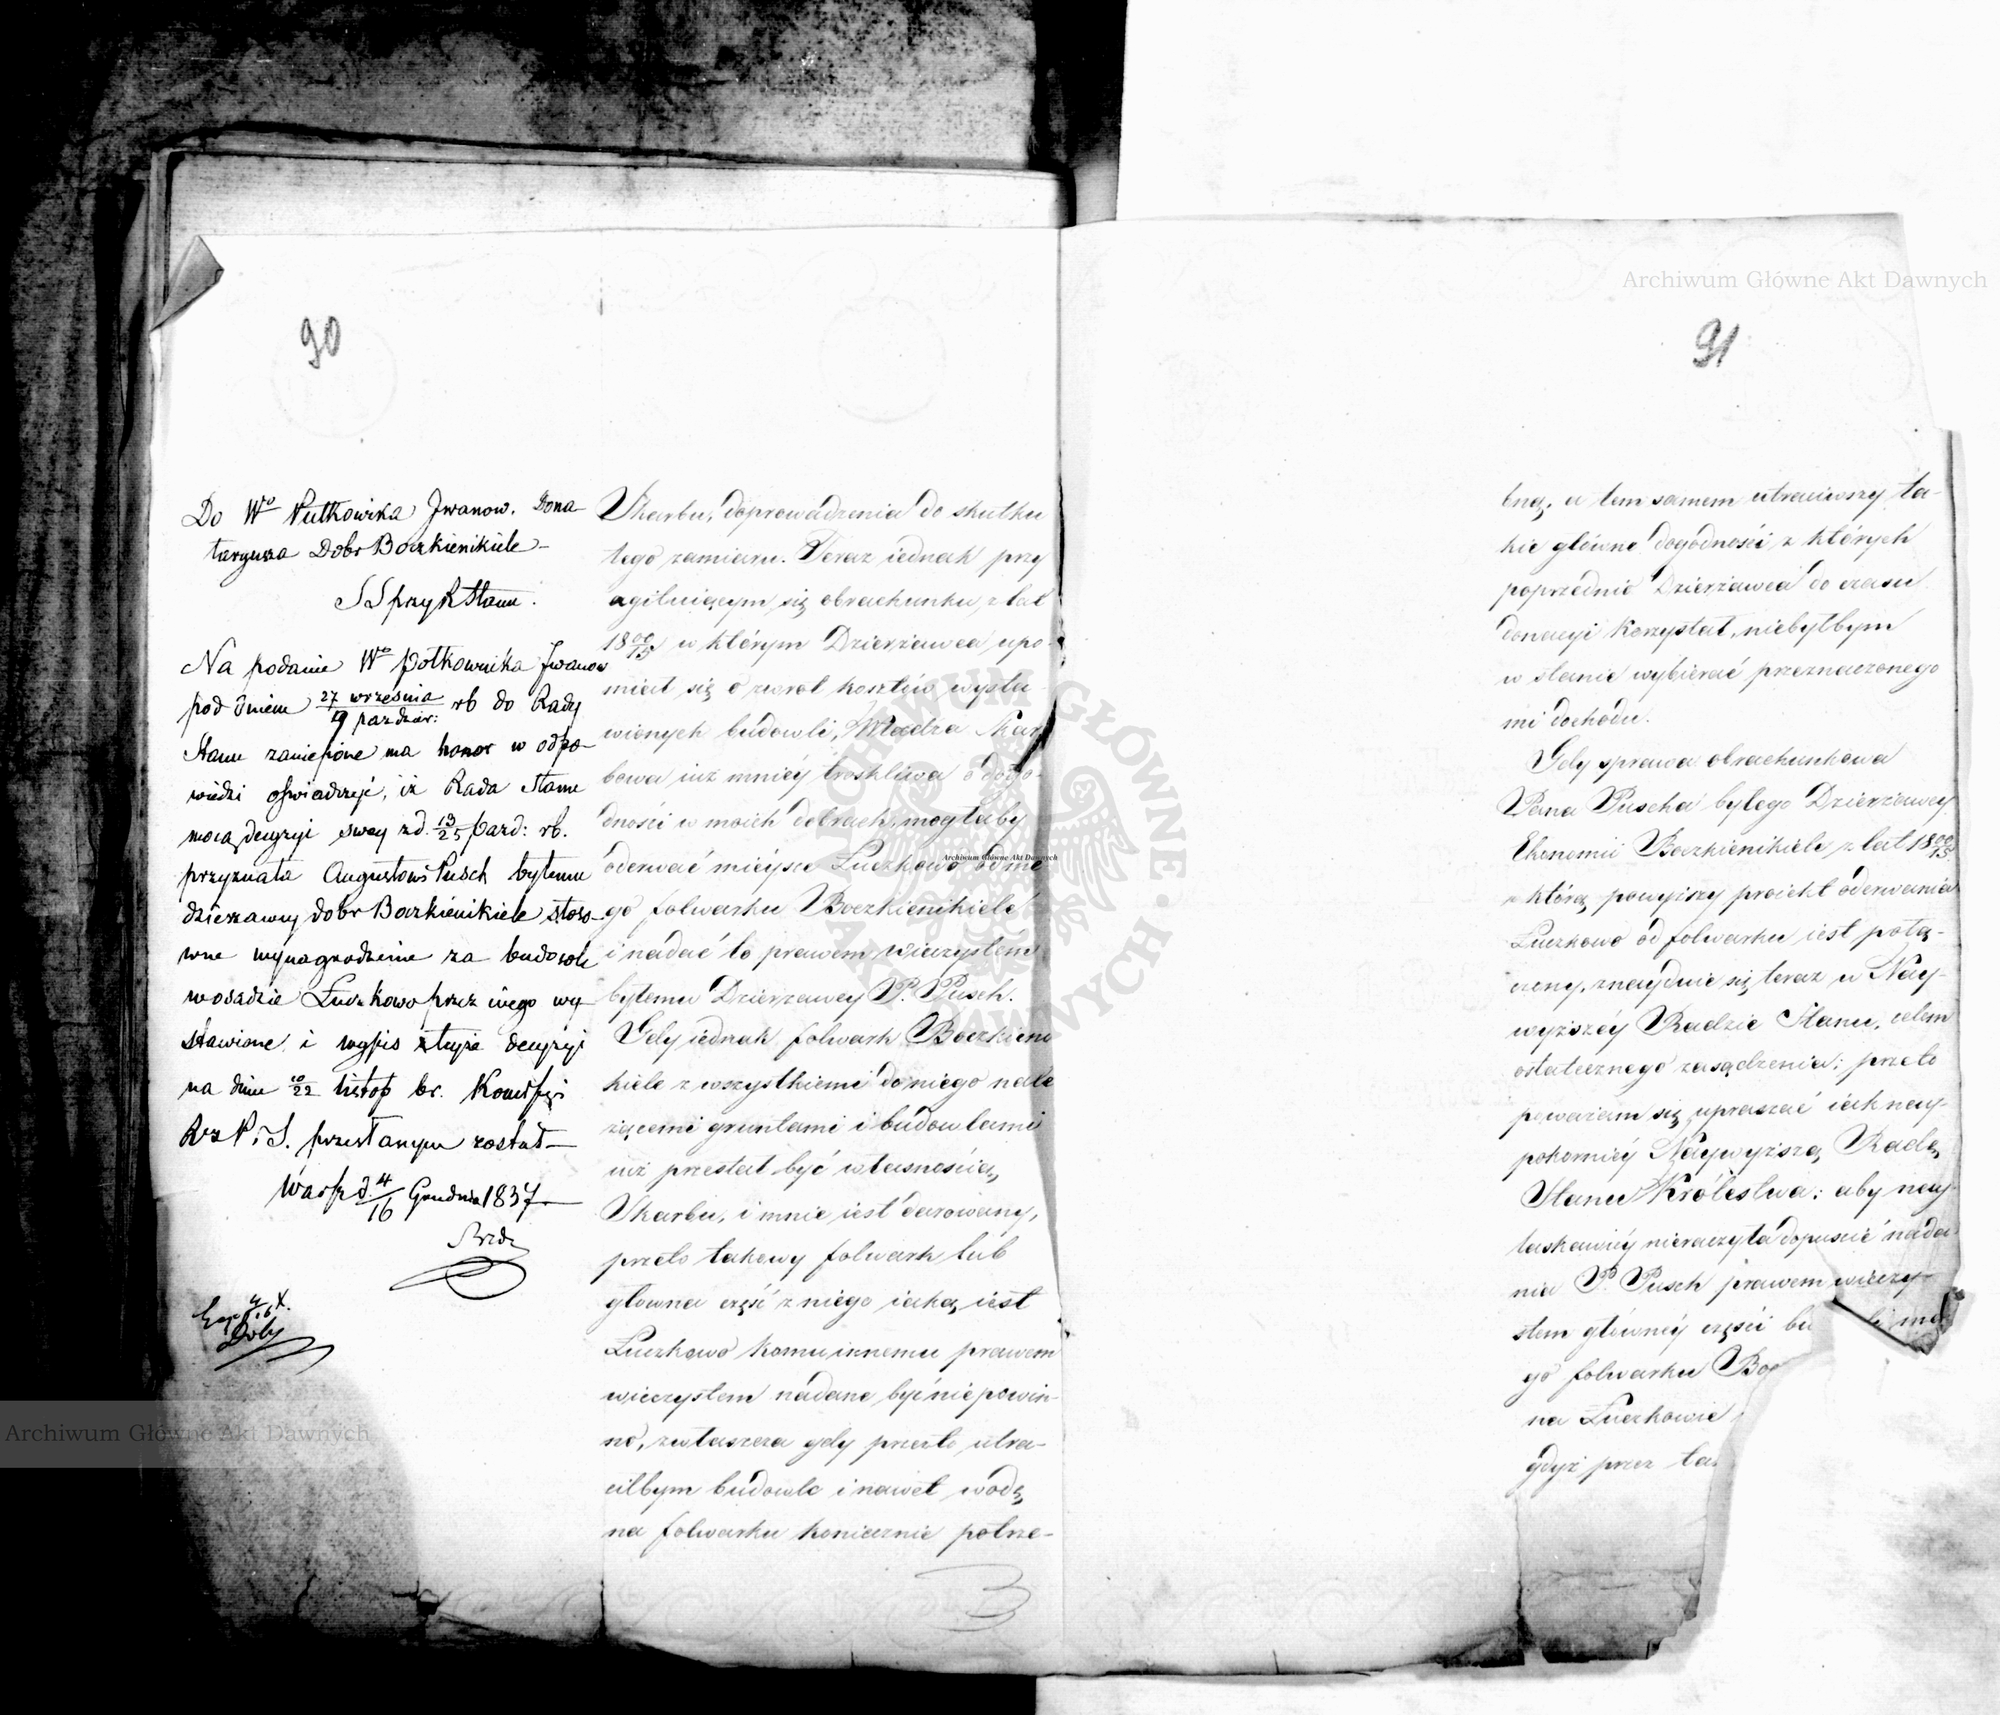 90
Do Wo Pułkownika Jwanow. Dona-
taryusza Dobr Boczkienikiele
S S przy R Stanu.
Na podanie Wo Pułkownika Jwanow
pod dniem 27 września / 9 paździer: rb do Rady
Stanu zaniesione ma honor w odpo-
wiedzi oświadczyć, iż Rada Stanu
mocą decyzyi swey z d. 13/25 pazd: rb.
przyznała Augustowi Pusch byłemu
dzierzawcy dobr Boczkienikiele stoso-
wne wynagrodzenie za budowle
w osadzie Łuczkowo przez niego wy-
stawione i wypis teyże decyzyi
na dniu 10/22 listop br. Kommissyi
Rz P. i S. przesłanym został
Warsz d. 4/16 Grudnia 1837
Skarbu, doprowadzenia do skutku
tego zamiaru. Teraz iednak przy
agituiącym się obrachunku, z lat
18 09/15 w którym Dzierżawca upo-
miał się o zwrot kosztów wysta-
wionych budowli, Władza Skar
bowa iuż mniéy troskliwa o dogo-
dności w moich dobrach, mogłaby
oderwać mieysce Łuczkowo od me
go folwarku Boczkienikiele
i nadać to prawem wieczystém
byłemu Dzierżawcy P. Pusch.
Gdy iednak folwark Boczkieni
kiele z wszystkiemi do niego nale
żącemi gruntami i budowlami
iuż przestał być własnością
Skarbu, i mnie iest darowany,
przeto takowy folwark lub
główna część z niego iaką iest
Łuczkowo komu innemu prawem
wieczystem nadane być niepowin-
no, zwłaszcza gdy przez to utra-
ciłbym budowle i nawet wodę
na folwarku koniecznie potrze-
91
bną, a tem samem utraciwszy ta-
kie główne dogodności z których
poprzednio Dzierżawca do czasu
donacyi korzystał, niebyłbym
w stanie wybierać przeznaczonego
mi dochodu.
Gdy sprawa obrachunkowa
Pana Puscha byłego Dzierżawcy
Ekonomii Boczkienikiele z lat 18 09/15
z którą powyższy proiekt oderwania
Łuczkowo od folwarku iest połą-
czony, znayduie się teraz w Nay-
wyższéy Radzie Stanu, celem
ostatecznego zasądzenia; przeto
poważam się upraszać iak nay-
pokorniéy Naywyższą Radę
Stanu Królestwa: aby nay-
łaskawiéy nieraczyła dopuścić nada-
nia P. Pusch prawem wieczy-
stem głównéy części bu
go folwarku Boc
na Łuczkowie
gdyż przez ta
Archiwum Główne Akt Dawnych
Archiwum Główne Akt Dawnych
Archiwum Główne Akt Dawnych
ARCHIWUM GŁÓWNE AKT DAWNYCH